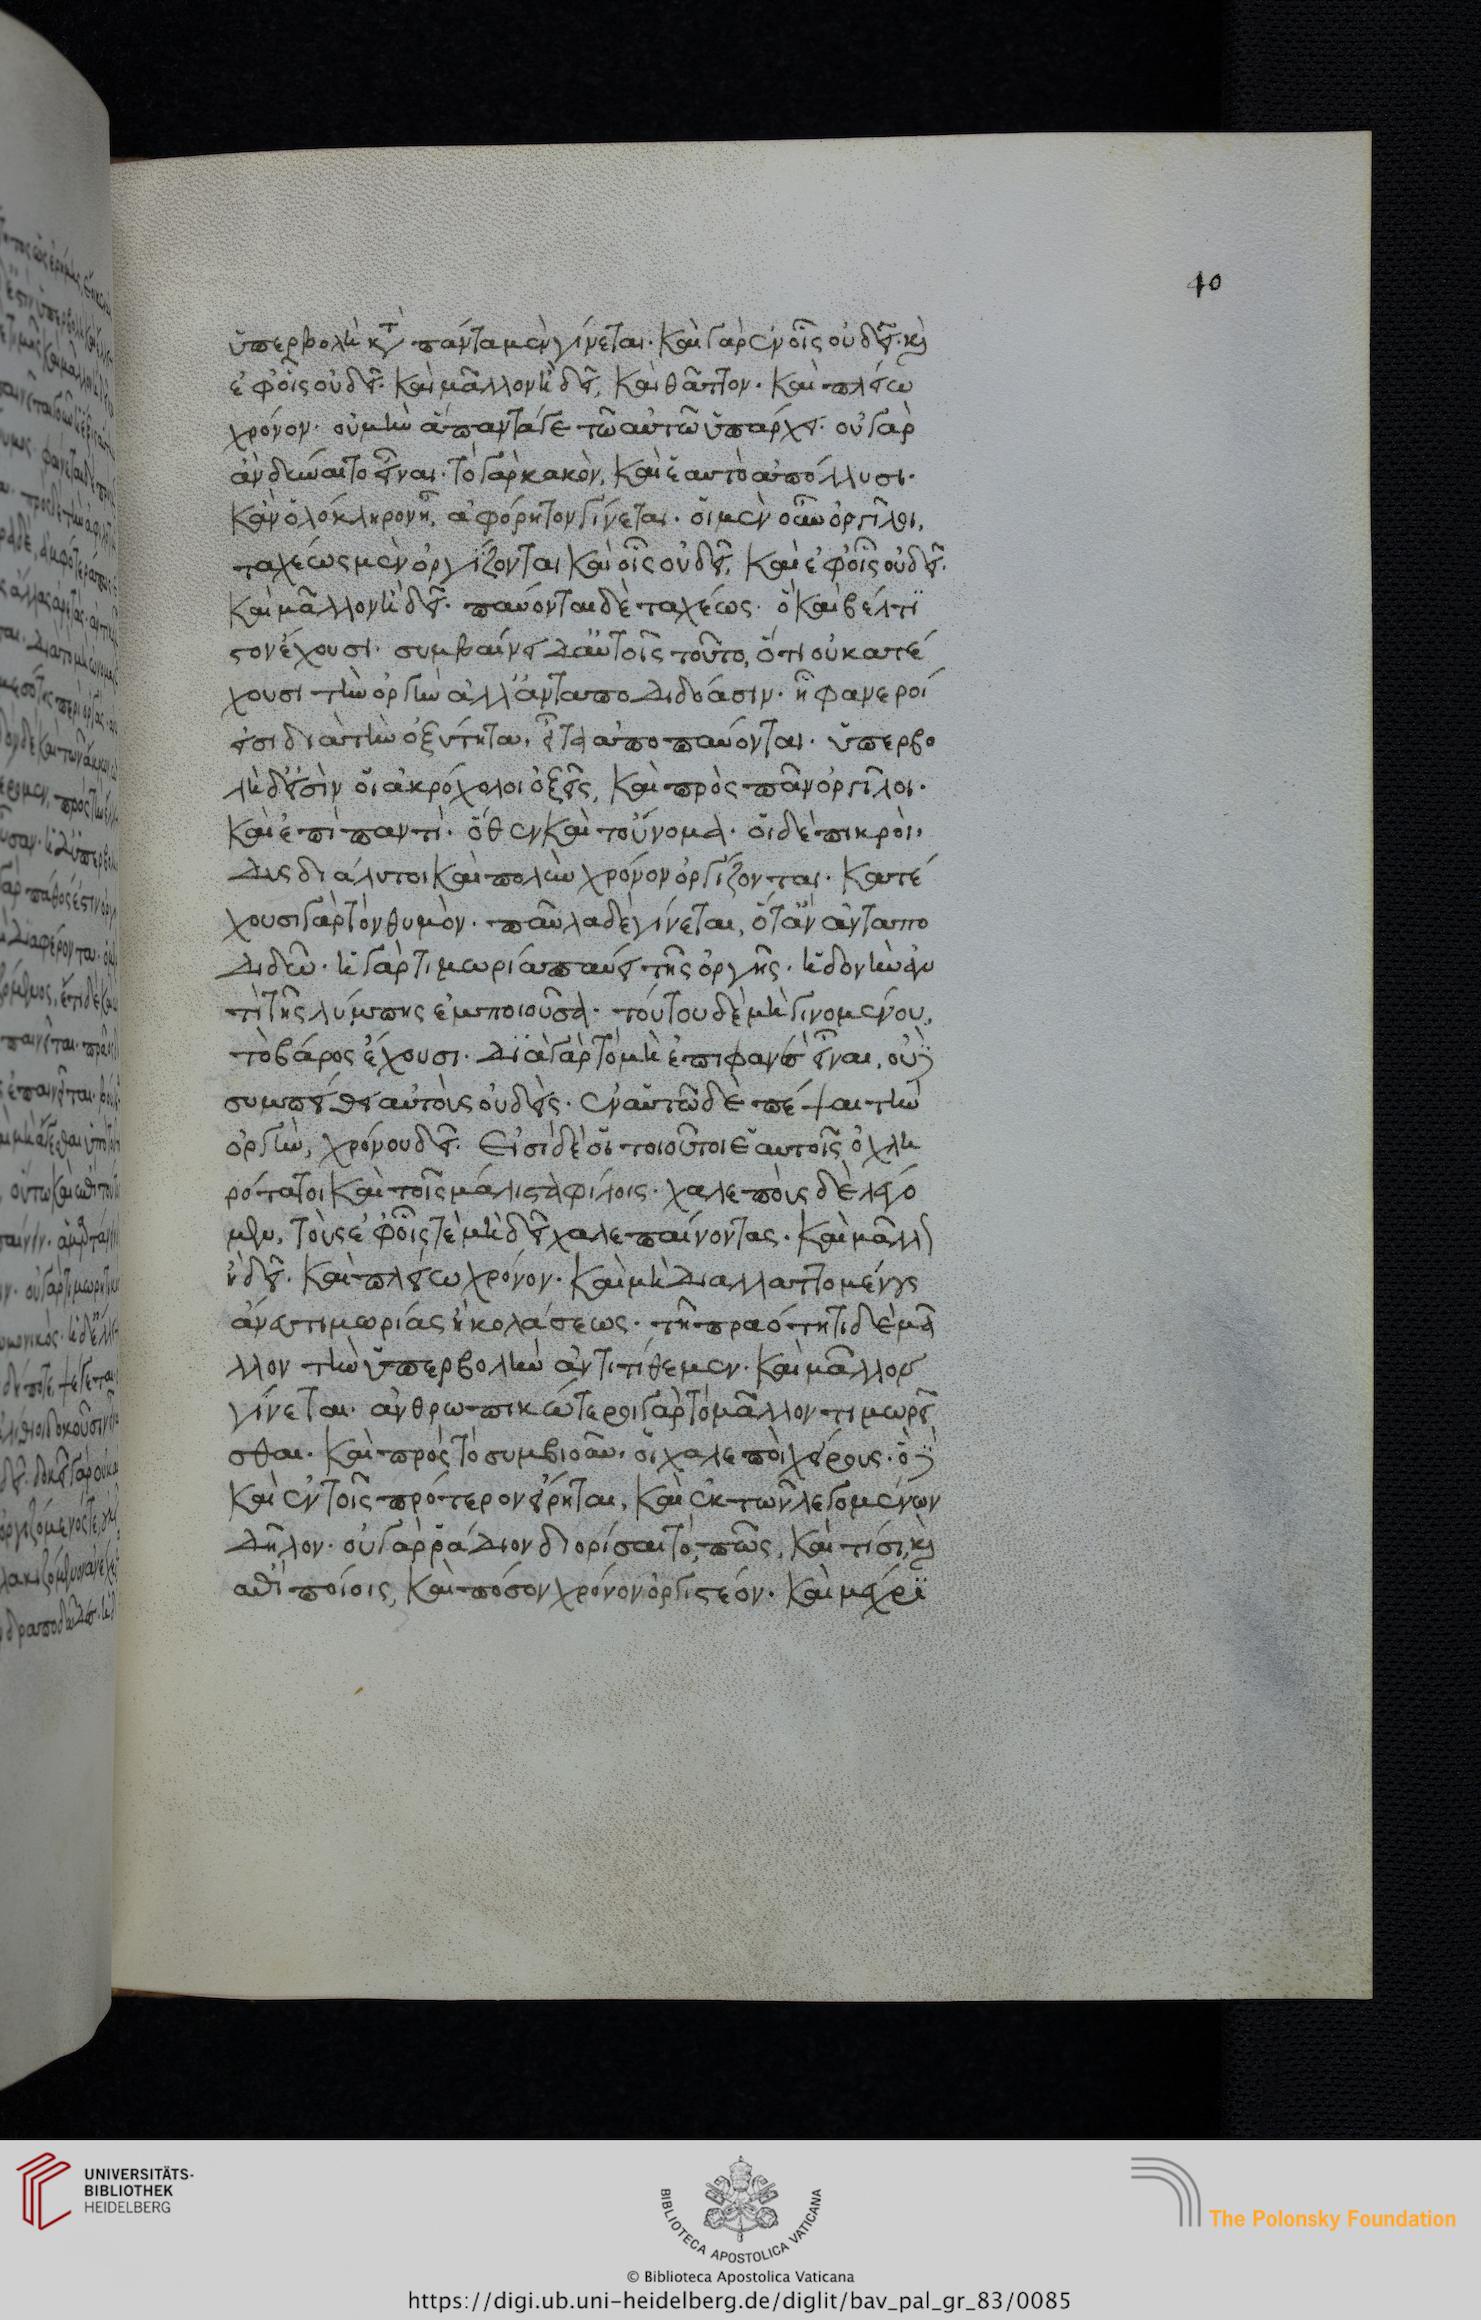 40
ὑπερβολὴ κτ πάντα μὲν γίνεται· καὶ γὰρ ἐν οἷς οὐ δεῖ· κ
ἐφ' οἷς οὐ δεῖ· καὶ μᾶλλον ἢ δεῖ, καὶ θᾶττον· καὶ πλείω
χρόνον· οὐ μὴν ἅπαντα γε τῶ αὐτῶ ὑπάρχει· οὐ γὰρ
ἂν δύναιτο εἶναι· τὸ γὰρ κακὸν, καὶ ἑαυτὸ ἀπόλλυσι·
κἂν ὁλόκληρον ἦ, ἀφόρητον γίνεται· οἱ μὲν οὖν ὀργίλοι,
ταχέως μὲν ὀργίζονται καὶ οἷς οὐ δεῖ, καὶ ἐφ' οἷς οὐ δεῖ·
καὶ μᾶλλον ἢ δεῖ· παύονται δὲ ταχέως· ὃ καὶ βέλτι
στον ἔχουσι· συμβαίνει δ' αὐτοῖς τοῦτο, ὅτι οὐ κατέ
χουσι τὴν ὀργὴν ἀλλ' ἀνταποδιδόασιν· ἧ φανεροί
εἰσι διὰ τὴν ὀξύτητα, εἶτ' ἀποπαύονται· ὑπερβο
λῆ δ' εἰσὶν οἱ ἀκρόχολοι ὀξεῖς, καὶ πρὸς πᾶν ὀργίλοι·
καὶ ἐπὶ παντί· ὅθεν καὶ τοὔνομα· οἱ δὲ πικροὶ,
δυσδιάλυτοι καὶ πολὺν χρόνον ὀργίζονται· κατέ
χουσι γὰρ τὸν θυμὸν· παῦλα δὲ γίνεται, ὅταν ἀνταπο
διδῶ· ἡ γὰρ τιμωρία παύει τῆς ὀργῆς· ἡδονὴν ἀν
τὶ τῆς λύπης ἐμποιοῦσα· τούτου δὲ μὴ γινομένου,
τὸ βάρος ἔχουσι· διὰ γὰρ τὸ μὴ ἐπιφανὲς εἶναι, οὐ
συμπείθει αὐτοὺς οὐδεὶς· ἐν αὑτῶ δὲ πέψαι τὴν
ὀργὴν, χρόνου δεῖ· εἰσὶ δὲ οἱ τοιοῦτοι ἑαυτοῖς ὀχλη
ρότατοι καὶ τοῖς μάλιστα φίλοις· χαλεποὺς δὲ λέγο
μεν, τοὺς ἐφ' οἷς τὲ μὴ δεῖ χαλεπαίνοντας· καὶ μᾶλλ
ἢ δεῖ· καὶ πλείω χρόνον· καὶ μὴ διαλλαττομένους
ἄνευ τιμωρίας ἢ κολάσεως· τῆ πραότητι δὲ μᾶ
λλον τὴν ὑπερβολὴν ἀντιτίθεμεν· καὶ μᾶλλον
γίνεται· ἀνθρωπικώτεροι γὰρ τὸ μᾶλλον τιμωρεῖ
σθαι· καὶ πρὸς τὸ συμβιοῦν· οἱ χαλεποὶ χείρους· ὃ
καὶ ἐν τοῖς πρότερον εἴρηται, καὶ ἐκ τῶν λεγομένων
δῆλον· οὐ γὰρ ῥάδιον διορίσαι τὸ, πῶς, καὶ τίσι, κ
ἐπὶ ποίοις, καὶ πόσον χρόνον ὀργιστέον· καὶ μέχρι
UNIVERSITÄTS-
BIBLIOTHEK
HEIDELBERG
BIBLIOTECA APOSTOLICA VATICANA
The Polonsky Foundation
© Biblioteca Apostolica Vaticana
https://digi.ub.uni-heidelberg.de/diglit/bav_pal_gr_83/0085